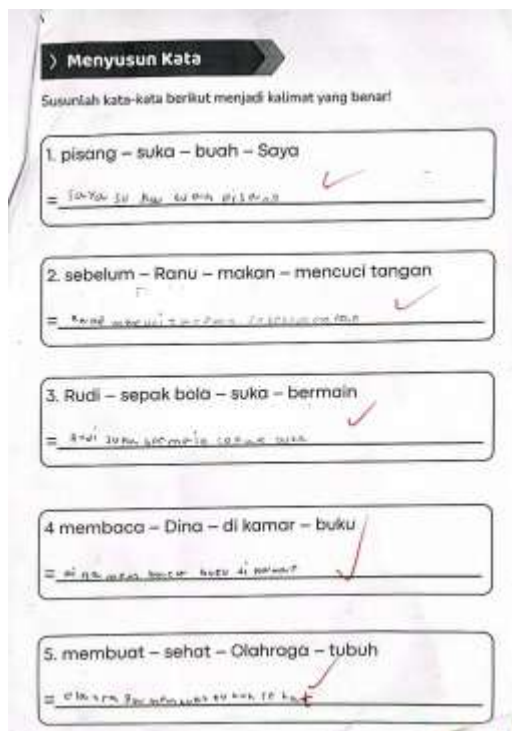 Menyusun Kata
Susunlah kata-kata berikut menjadi kalimat yang benar!
1. pisang – suka – buah – Saya
= Saya su ka buah pisang
2. sebelum – Ranu – makan – mencuci tangan
= mencuci tangan sebelum makan
3. Rudi – sepak bola – suka – bermain
= Rudi suka bermain
4 membaca – Dina – di kamar – buku
= dina mem baca buku di kamar
5. membuat – sehat – Olahraga – tubuh
= olahra ga membuat tubuh se hat